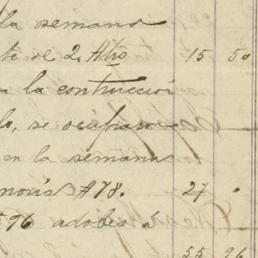 la semana
te de 2. Atrio 15 50
a la contruccion
lo, se ocuparon
en la semana
A 78. 27 "
596 adobes á
55 96